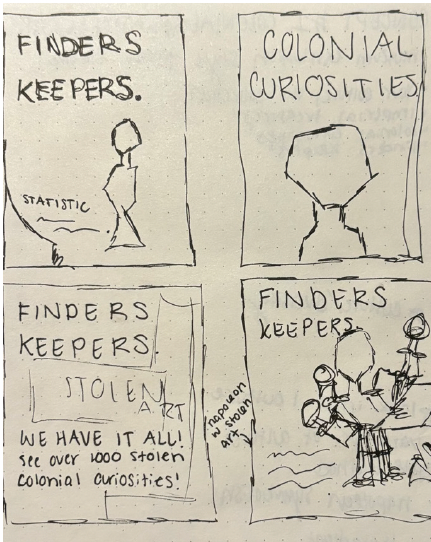 FINDERS
KEEPERS.
STATISTIC
COLONIAL
CURIOSITIES
FINDERS
KEEPERS.
STOLEN
ART
WE HAVE IT ALL!
see over 1000 stolen
colonial curiosities!
napoleon
w stolen
art
FINDERS
KEEPERS